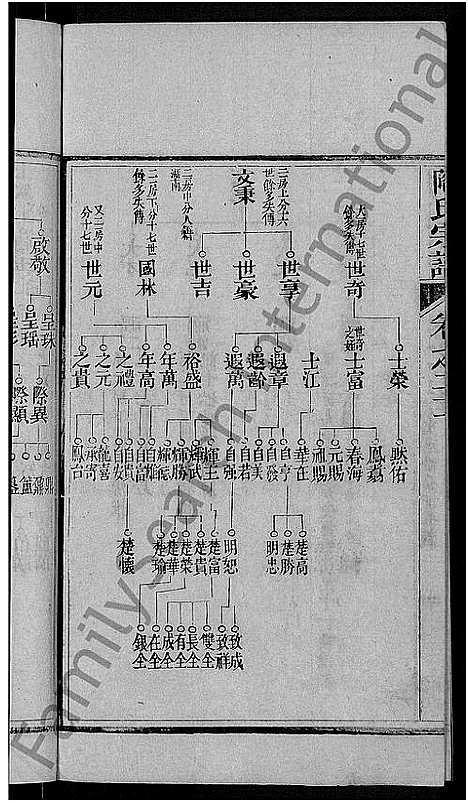 氏宗譜
世奇
三房上分十六
世餘多失傳
文秉
三房中分入籍
湖南
二房下分十七世
餘多失傳
又三房中
分十七世
世享
世豪
世吉
國林
世元
士榮
士富
士江
遐章
遐齡
遐萬
裕盛
年萬
年高
之禮
之元
之貴
默佑
鳳荔
春海
元賜
華在
自亨
自發
自美
自若
自強
輝玉
輝武
輝勝
自貴
自安
龍喜
承寄
鳳台
楚高
楚勝
明忠
明恕
楚富
楚貴
楚榮
楚華
楚瑜
楚懷
致成
致祥
雙全
長全
有全
成全
在全
銀全
啟敬
呈珠
呈瑶
際異
際顯
FamilySearch International